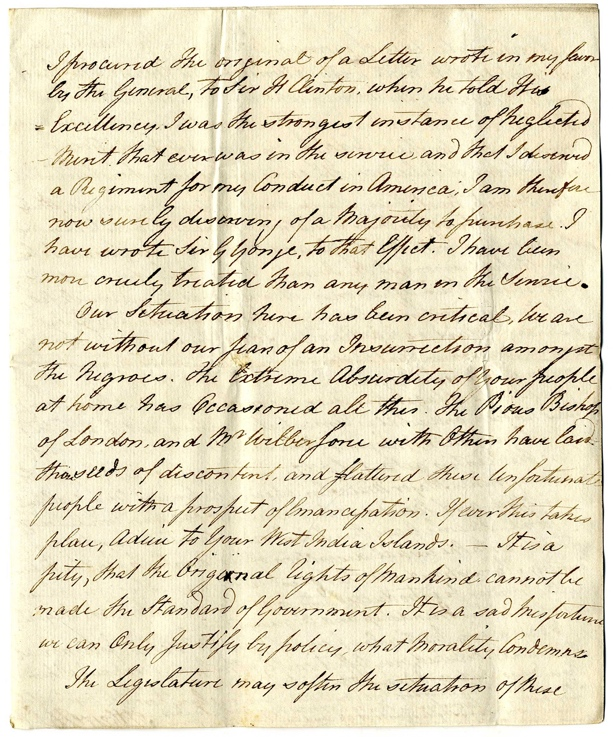 I procured the original of a Letter wrote in my favor
by the General, to Sir H Clinton, when he told His
Excellency, I was the strongest instance of Neglected
Merit, that ever was in the service, and that I deserved
a Regiment for my Conduct in America; I am therefore
now surely deserving of a Majority to purchase. I
have wrote Sir G Yonge, to that Effect. I have been
more cruely treated than any man in the Service.
Our Situation here has been critical, we are
not without our fears of an Insurrection amongst
the Negroes. The Extreme Absurdity of Your people
at home has Occasioned all this. The Pious Bishop
of London, and Mr Wilberforce with Others have laid
the seeds of discontent, and flattered these Unfortunate
people with a prospect of Emancipation. If ever this takes
place, Adieu to Your West India Islands. — It is a
pity, that the Original Rights of Mankind cannot be
made the Standard of Government. It is a sad Misfortune
we can Only Justify by policy, what Morality Condemns
The Legislature may soften the situation of these